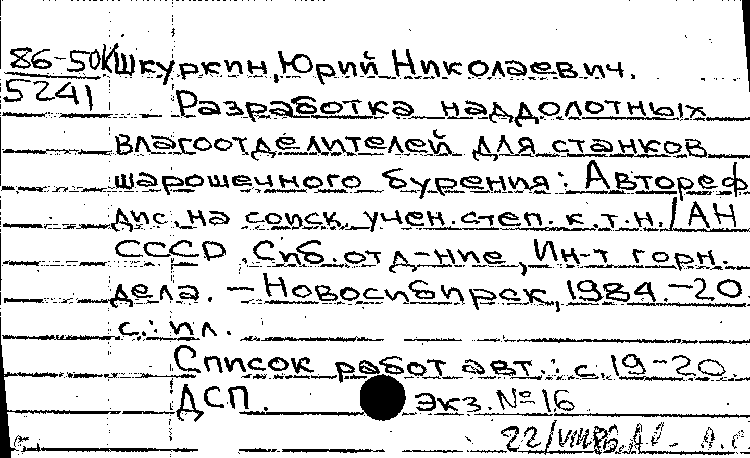 86-50к Шкуркин, Юрий Николаевич.
5241 Разработка наддолотных
влагоотделителей для станков
шарошечного бурения: Автореф
дис. на соиск. учен. степ. к.т.н./АН
СССР. Сиб. отд-ние, Ин-т горн.
дела. – Новосибирск, 1984.-20
с.: ил.
Список работ авт.: с. 19-20.
ДСП. Экз. №16
22/VIII86.